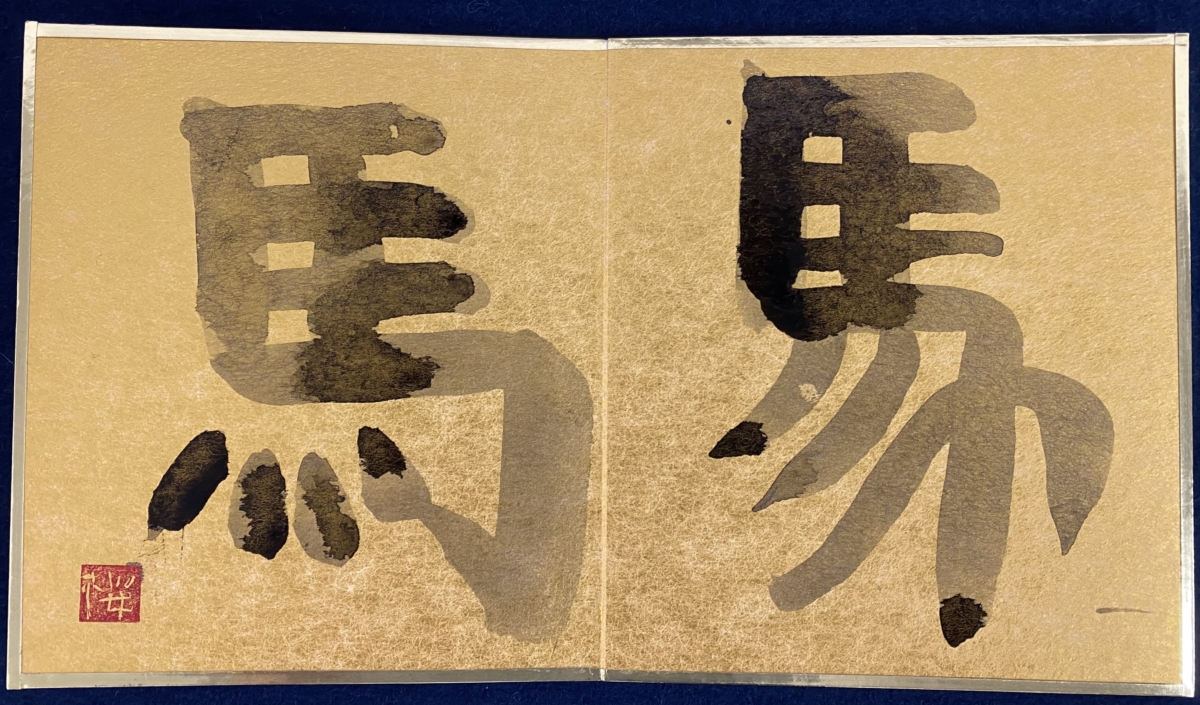 馬馬
桜